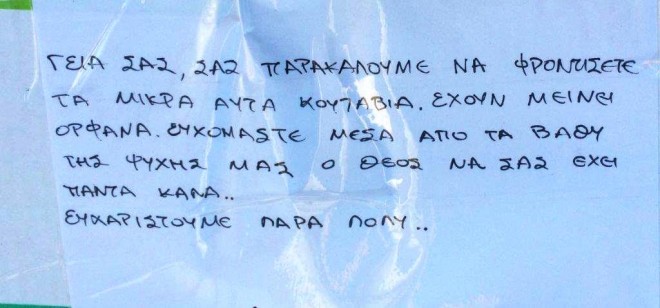 ΓΕΙΑ ΣΑΣ, ΣΑΣ ΠΑΡΑΚΑΛΟΥΜΕ ΝΑ ΦΡΟΝΤΙΣΕΤΕ
ΤΑ ΜΙΚΡΑ ΑΥΤΑ ΚΟΥΤΑΒΙΑ. ΕΧΟΥΝ ΜΕΙΝΕΙ
ΟΡΦΑΝΑ. ΕΥΧΟΜΑΣΤΕ ΜΕΣΑ ΑΠΟ ΤΑ ΒΑΘΥ
ΤΗΣ ΨΥΧΗΣ ΜΑΣ Ο ΘΕΟΣ ΝΑ ΣΑΣ ΕΧΕΙ
ΠΑΝΤΑ ΚΑΛΑ..
ΕΥΧΑΡΙΣΤΟΥΜΕ ΠΑΡΑ ΠΟΛΥ..